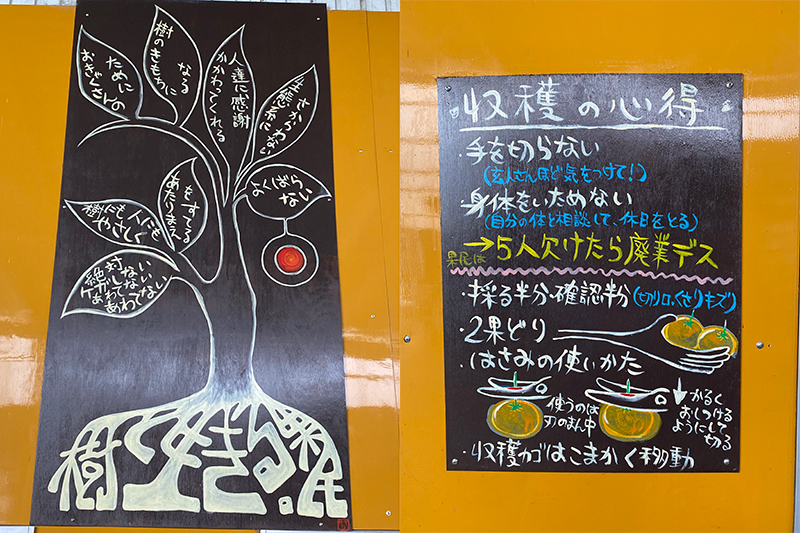 おきゃくさんの
ために
樹のきもちに
なる
かかわってくれる
人達に感謝
生態系に
さからわない
よくばら
ない
あたりまえ
をすてる
樹にも人にも
やさしく
絶対
ケガしない
あわてない
樹と生きる果民
収穫の心得
・手を切らない
(玄人さんほど気をつけて!)
・身体をいためない
(自分の体と相談して、休日をとる)
果民は→5人欠けたら廃業デス
・採る半分・確認半分(切り口、くさり、キズ)
・2果どり
・はさみの使いかた
使うのは
刃のまん中
かるく
おしつける
ようにして
切る
・収穫カゴはこまかく移動